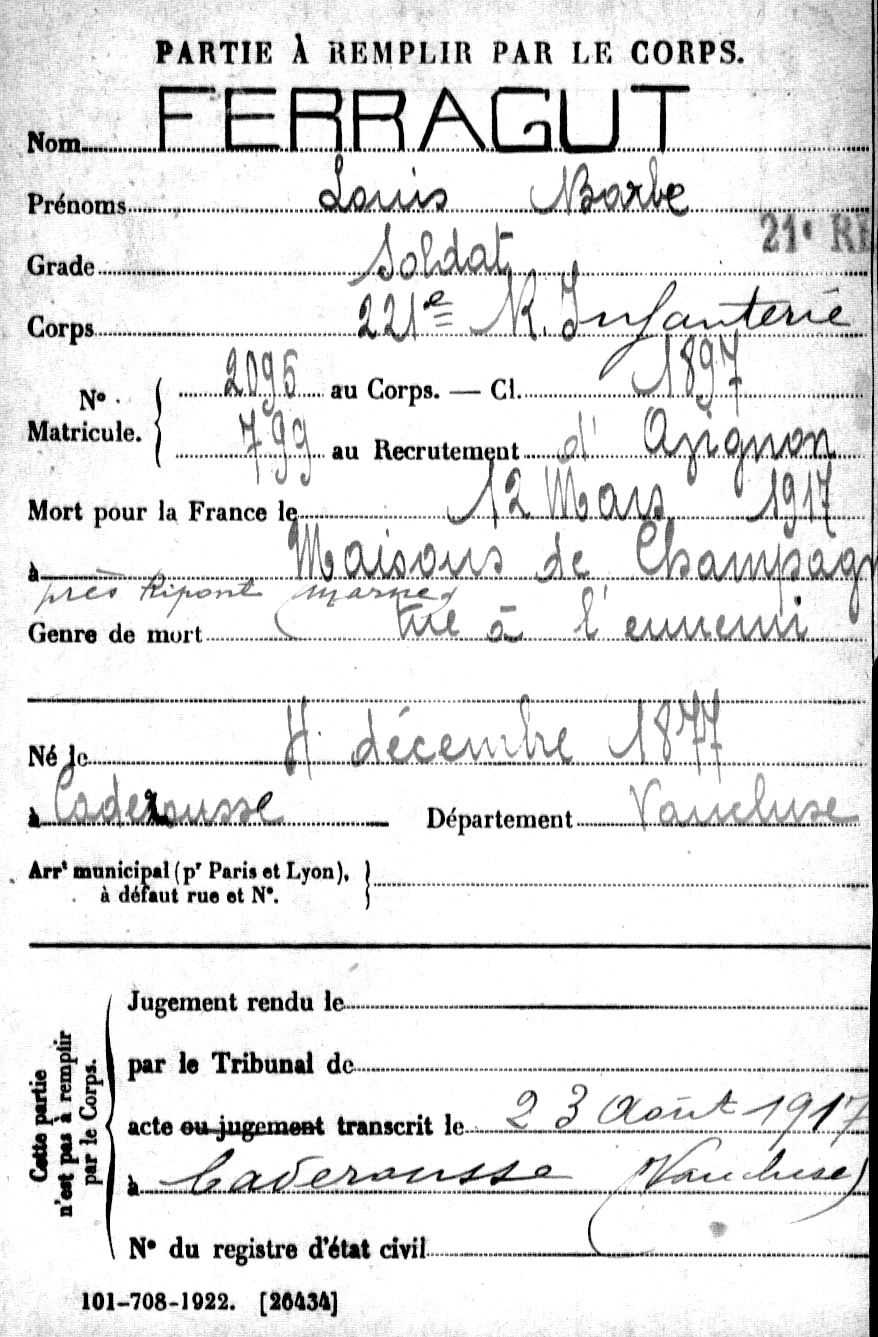 PARTIE À REMPLIR PAR LE CORPS.
Nom FERRAGUT
Prénoms Louis Barbe
21e RE
Grade Soldat
Corps 221e R. Infanterie
No Matricule. { 2096 au Corps. — Cl. 1897
799 au Recrutement d'Avignon
Mort pour la France le 12 Mars 1917
à Maisons de Champagn
près Ripont (Marne)
Genre de mort tué à l'ennemi
Né le 4 décembre 1877
à Caderousse Département Vaucluse
Arrt municipal (pr Paris et Lyon),
à défaut rue et No.
Cette partie
n'est pas à remplir
par le Corps.
Jugement rendu le
par le Tribunal de
acte ou jugement transcrit le 23 Août 1917
à Caderousse (Vaucluse)
No du registre d'état civil
101-708-1922. [26434]